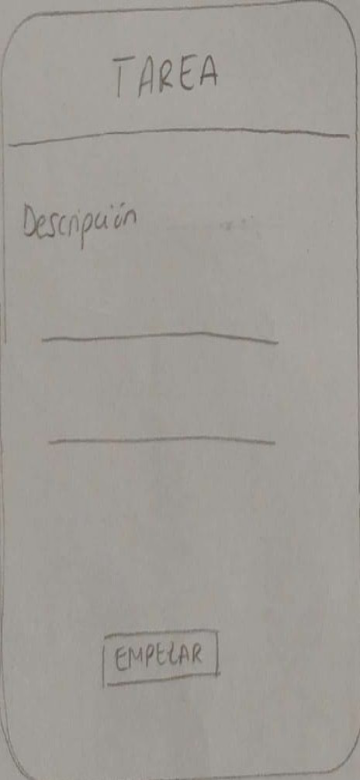 TAREA
Descripción
EMPEZAR